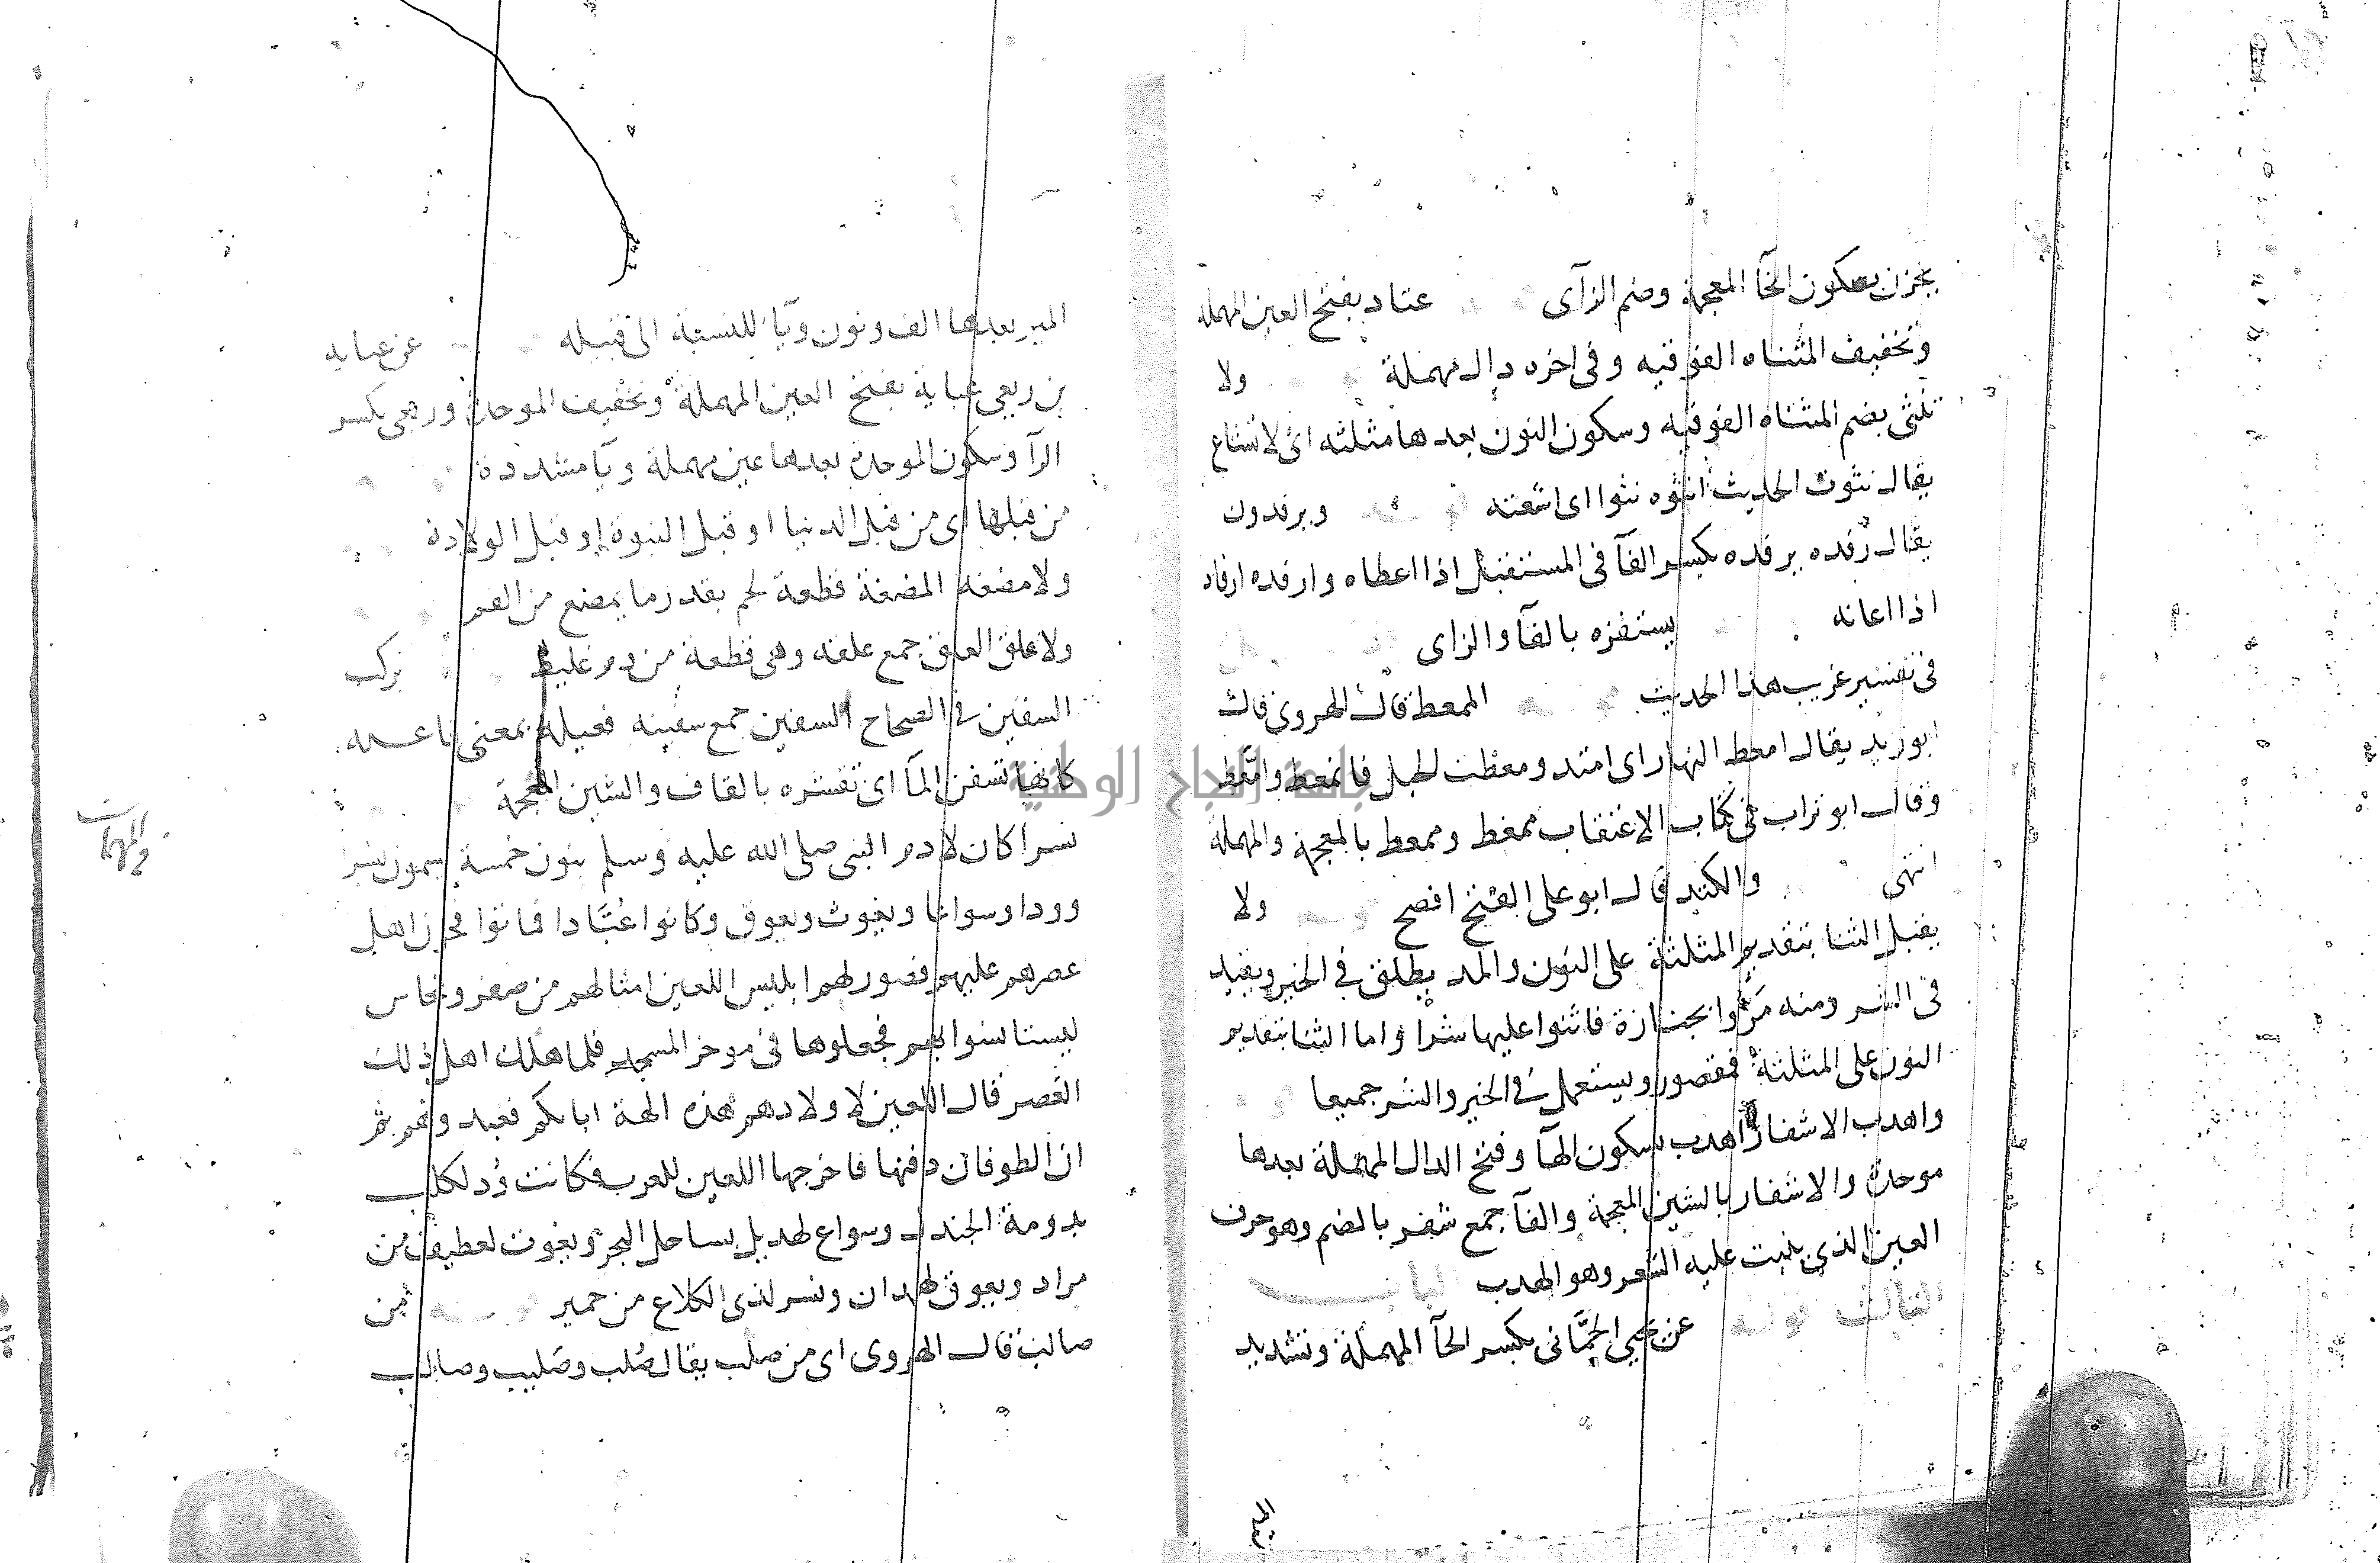 يخزن بسكون الخآ المعجمة وضم الزآى عتاد بفتح العين المهملة
وتخفيف المثناه الفوقيه وفى اخره دال مهملة ولا
تنثى بضم المثناه الفوقيه وسكون النون بعدها مثلثه اى لا تشاع
يقال نثوت الحديث انثوه نثوا اى اشعته ويرفدون
يقال رفده يرفده بكسر الفآ فى المستقبل اذا اعطاه وارفده ارفاد
اذا اعانه يستفزه بالفآ والزاى
فى تفسير غريب هذا الحديث الممغط قال الهروى قال
ابو زيد يقال امغط النهار اى امتد ومغطت الحبل فانمغط وامّغط
وقال ابو تراب فى كتاب الاعتقاب ممغط وممعط بالمعجمة والمهملة
انتهى والكتد قال ابو على الفتح افصح ولا
يقبل الثنا بتقديم المثلثة على النون والمد يطلق فى الخير ويقيد
فى الشر ومنه مَرّوا بجنازة فاثنوا عليها شرا واما النثا بتقديم
النون على المثلثة فمقصور ويستعمل فى الخير والشر جميعا
واهدب الاشفار اهدب بسكون الهآ وفتح الدال المهملة بعدها
موحدة والاشفار بالشين المعجمة والفآ جمع شفر بالضم وهو حرف
العين الذى ينبت عليه الشعر وهو الهدب الباب
الثالث قوله عن يحيى الحِمَّانى بكسر الحآ المهملة وتشديد
الميم بعدها الف ونون ويآ للنسبة الى قبيله عن عبايه
بن ربعى عباية بفتح العين المهملة وتخفيف الموحدة وربعى بكسر
الرآ وسكون الموحدة بعدها عين مهملة ويآ مشددة
من قبلها اى من قبل الدنيا او قبل النبوة او قبل الولادة
ولا مضغه المضغة قطعة لحم بقدر ما يمضغ من الفم
ولا علق العلق جمع علقه وهى قطعة من دم غليظ تركب
السفين فى الصحاح السفين جمع سفينه فعيله بمعنى فاعله
كانها تسفن المآ اى تقشره بالقاف والشين المعجمة
نسرا كان لادم النبى صلى الله عليه وسلم بنون خمسة يسمون نسرا
وودا وسواعا ويغوث ويعوق وكانوا عُبَّادا فماتوا فحزن اهل
عصرهم عليهم فصور لهم ابليس اللعين امثالهم من صفر ونحاس
ليستانسوا بهم فجعلوها فى موخر المسجد فلما هلك اهل ذلك
العصر قال اللعين لاولادهم هذه الهة ابائكم فعبدوهم ثم
ان الطوفان دفنها فاخرجها اللعين للعرب فكانت وُد لكلب
بدومة الجندل وسواع لهديل بساحل البحر ويغوث لغطيف من
مراد ويعوق لهمدان ونسر لذى الكلاع من حمير من
صالب قال الهروى اى من صلب يقال صُلب وصَليب وصالب